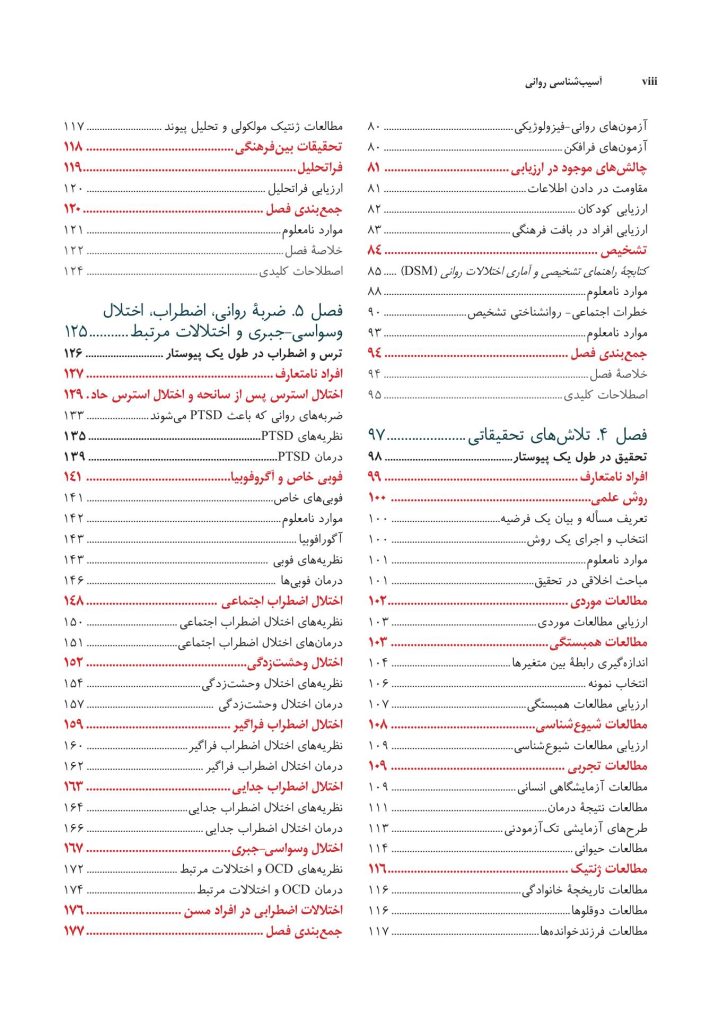 viii آسیب‌شناسی روانی
آزمون‌های روانی-فیزولوژیکی ۸۰
آزمون‌های فرافکن ۸۰
چالش‌های موجود در ارزیابی ۸۱
مقاومت در دادن اطلاعات ۸۱
ارزیابی کودکان ۸۲
ارزیابی افراد در بافت فرهنگی ۸۳
تشخیص ۸۴
کتابچهٔ راهنمای تشخیصی و آماری اختلالات روانی (DSM) ۸۵
موارد نامعلوم ۸۸
خطرات اجتماعی- روانشناختی تشخیص ۹۰
موارد نامعلوم ۹۳
جمع‌بندی فصل ۹۴
خلاصهٔ فصل ۹۴
اصطلاحات کلیدی ۹۵
فصل ۴. تلاش‌های تحقیقاتی ۹۷
تحقیق در طول یک پیوستار ۹۸
افراد نامتعارف ۹۹
روش علمی ۱۰۰
تعریف مسأله و بیان یک فرضیه ۱۰۰
انتخاب و اجرای یک روش ۱۰۰
موارد نامعلوم ۱۰۱
مباحث اخلاقی در تحقیق ۱۰۱
مطالعات موردی ۱۰۲
ارزیابی مطالعات موردی ۱۰۳
مطالعات همبستگی ۱۰۳
اندازه‌گیری رابطهٔ بین متغیرها ۱۰۴
انتخاب نمونه ۱۰۶
ارزیابی مطالعات همبستگی ۱۰۷
مطالعات شیوع‌شناسی ۱۰۸
ارزیابی مطالعات شیوع‌شناسی ۱۰۹
مطالعات تجربی ۱۰۹
مطالعات آزمایشگاهی انسانی ۱۰۹
مطالعات نتیجهٔ درمان ۱۱۱
طرح‌های آزمایشی تک‌آزمودنی ۱۱۳
مطالعات حیوانی ۱۱۴
مطالعات ژنتیک ۱۱۶
مطالعات تاریخچهٔ خانوادگی ۱۱۶
مطالعات دوقلوها ۱۱۶
مطالعات فرزندخوانده‌ها ۱۱۷
مطالعات ژنتیک مولکولی و تحلیل پیوند ۱۱۷
تحقیقات بین‌فرهنگی ۱۱۸
فراتحلیل ۱۱۹
ارزیابی فراتحلیل ۱۲۰
جمع‌بندی فصل ۱۲۰
موارد نامعلوم ۱۲۱
خلاصهٔ فصل ۱۲۲
اصطلاحات کلیدی ۱۲۴
فصل ۵. ضربهٔ روانی، اضطراب، اختلال
وسواسی-جبری و اختلالات مرتبط ۱۲۵
ترس و اضطراب در طول یک پیوستار ۱۲۶
افراد نامتعارف ۱۲۷
اختلال استرس پس از سانحه و اختلال استرس حاد. ۱۲۹
ضربه‌های روانی که باعث PTSD می‌شوند ۱۳۳
نظریه‌های PTSD ۱۳۵
درمان PTSD ۱۳۹
فوبی خاص و آگروفوبیا ۱۴۱
فوبی‌های خاص ۱۴۱
موارد نامعلوم ۱۴۲
آگورافوبیا ۱۴۳
نظریه‌های فوبی ۱۴۳
درمان فوبی‌ها ۱۴۶
اختلال اضطراب اجتماعی ۱۴۸
نظریه‌های اختلال اضطراب اجتماعی ۱۵۰
درمان‌های اختلال اضطراب اجتماعی ۱۵۱
اختلال وحشت‌زدگی ۱۵۲
نظریه‌های اختلال وحشت‌زدگی ۱۵۴
درمان اختلال وحشت‌زدگی ۱۵۷
اختلال اضطراب فراگیر ۱۵۹
نظریه‌های اختلال اضطراب فراگیر ۱۶۰
درمان اختلال اضطراب فراگیر ۱۶۲
اختلال اضطراب جدایی ۱۶۳
نظریه‌های اختلال اضطراب جدایی ۱۶۴
درمان اختلال اضطراب جدایی ۱۶۶
اختلال وسواسی-جبری ۱۶۷
نظریه‌های OCD و اختلالات مرتبط ۱۷۲
درمان OCD و اختلالات مرتبط ۱۷۴
اختلالات اضطرابی در افراد مسن ۱۷۶
جمع‌بندی فصل ۱۷۷